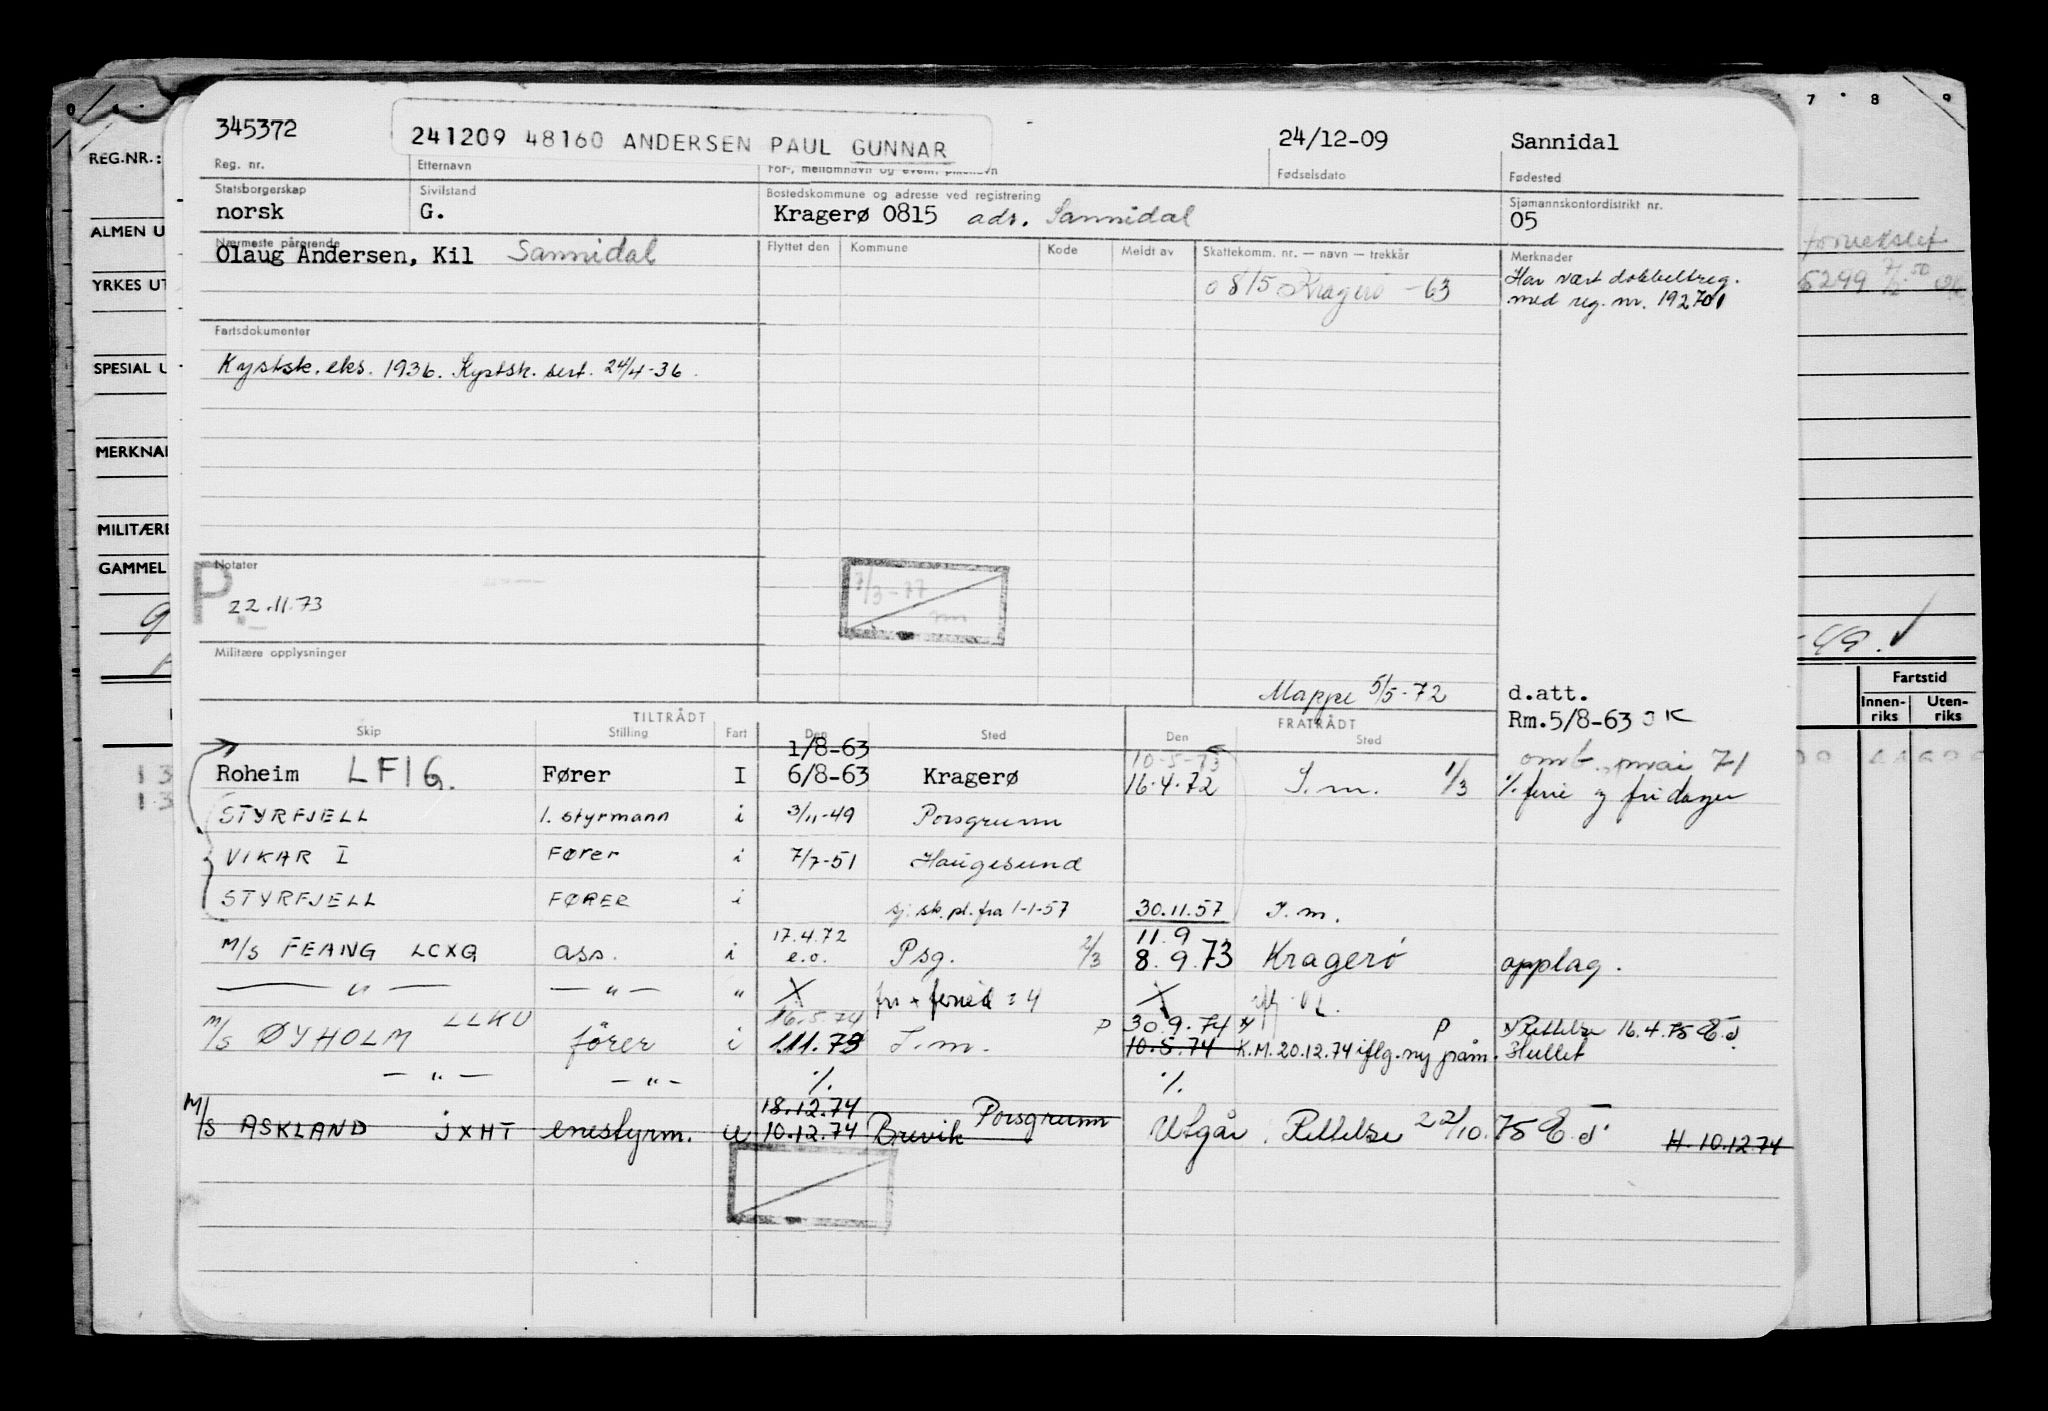 345372
241209 48160 ANDERSEN PAUL GUNNAR
24/12-09
Sannidal
Reg. nr.
Etternavn
For-, mellomnavn og event.
Fødselsdato
Fødested
Statsborgerskap
norsk
Sivilstand
G.
Bostedskommune og adresse ved registrering
Kragerø 0815 adr. Sannidal
Sjømannskontordistrikt nr.
05
Nærmeste pårørende
Olaug Andersen, Kil Sannidal
Flyttet den
Kommune
Kode
Meldt av
Skattekomm. nr. — navn — trekkår
0815 Kragerø -63
Merknader
Har vært dobbeltreg.
med reg. nr. 192701
Fartsdokumenter
Kystsk. eks. 1936. Kystsk. sert. 24/4-36.
Notater
P.
22.11.73
7/3-77
Militære opplysninger
Mappe 5/5-72
d.att.
Rm.5/8-63 JK
TILTRÅDT
FRATRÅDT
Skip
Stilling
Fart
Den
Sted
Den
Sted
1/8-63
Roheim LFIG. Fører I 6/8-63 Kragerø
10-5-73
16.4.72 S.m. 1/3
omb. mai 71
% ferie og fridager
STYRFJELL 1. styrmann i 3/11-49 Porsgrunn
VIKAR I Fører i 7/7-51 Haugesund
STYRFJELL FØRER i sj. sk. pl. fra 1-1-57 30.11.57 S.m.
M/S FEANG LCXG ass. i 17.4.72 e.o. Psg. 2/3 11.9
8.9.73 Kragerø opplag.
— " — — " — " X fri + ferie = 4 X
M/S ØYHOLM LLKU fører i 16.5.74
1.11.73 S.m. P 30.9.74 P Rettelse 16.4.75
10.5.74 K.M. 20.12.74 iflg. ny påm. Hullet
— " — — " — % %
M/S ASKLAND JXHT enestyrm. u 18.12.74 Porsgrunn
10.12.74 Brevik Utgår. Rettelse 22/10.75 H. 10.12.74
REG.NR.:
ALMEN U
YRKES UT
SPESIAL U
MERKNAD
MILITÆRE
GAMMEL
7 8 9
5299
-49.
Fartstid
Innen-
riks
Uten-
riks
13
13